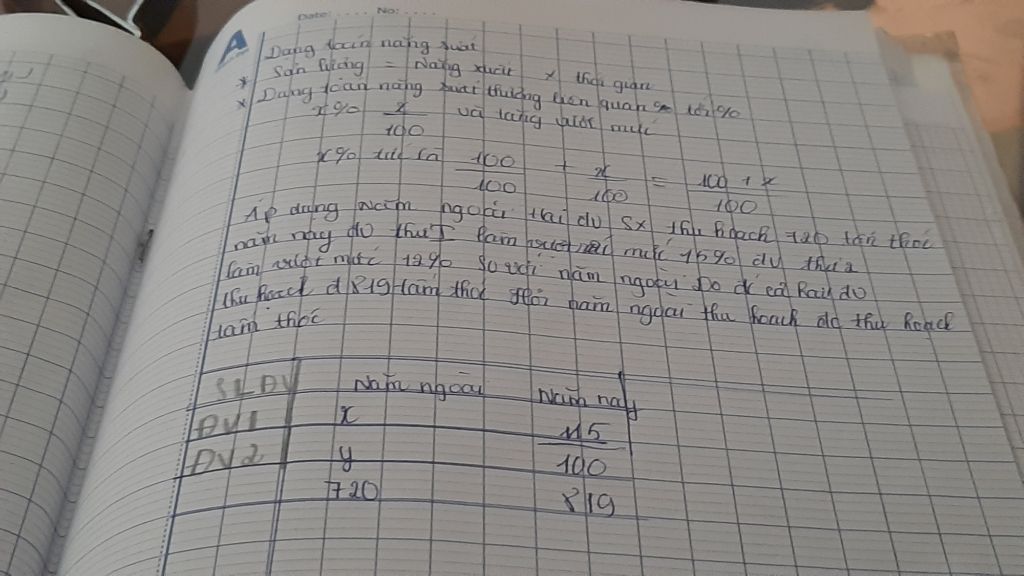 Date: .... No: ....
A
Dạng toán năng suất
* Sản lượng = Năng xuất x thời gian
* Dạng toán năng xuất thường liên quan tới %
x% x/100 và tăng vượt mức
x% tức là 100/100 + x/100 = 100 + x/100
Áp dụng Năm ngoái Hai dv sx thu hoạch 720 tấn thóc
năm nay dv thứ I làm vượt mức 15% dv thứ 2
làm vượt mức 12% so với năm ngoái Do đó cả hai dv
thu hoạch đ 819 tấn thóc Hỏi năm ngoái thu hoạch dc thu hoạch
tấn thóc
SL DV Năm ngoái Năm nay
ĐV1 x 115/100
ĐV2 y
720 819